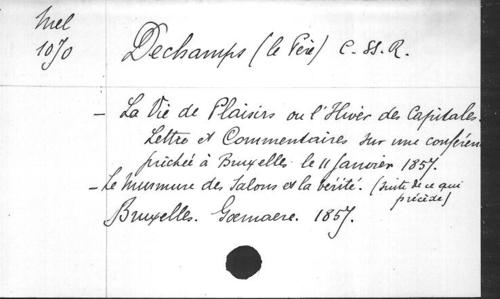 Mel
1070
Dechamps (le Père) C. SS. R.
- La Vie de Plaisirs ou l'Hiver des Capitales.
Lettre et Commentaires sur une conféren
prêchée à Bruxelles le 11 Janvier 1857.
- Le murmure des Salons et la vérité. (suite de ce qui
précède)
Bruxelles. Goemaere. 1857.